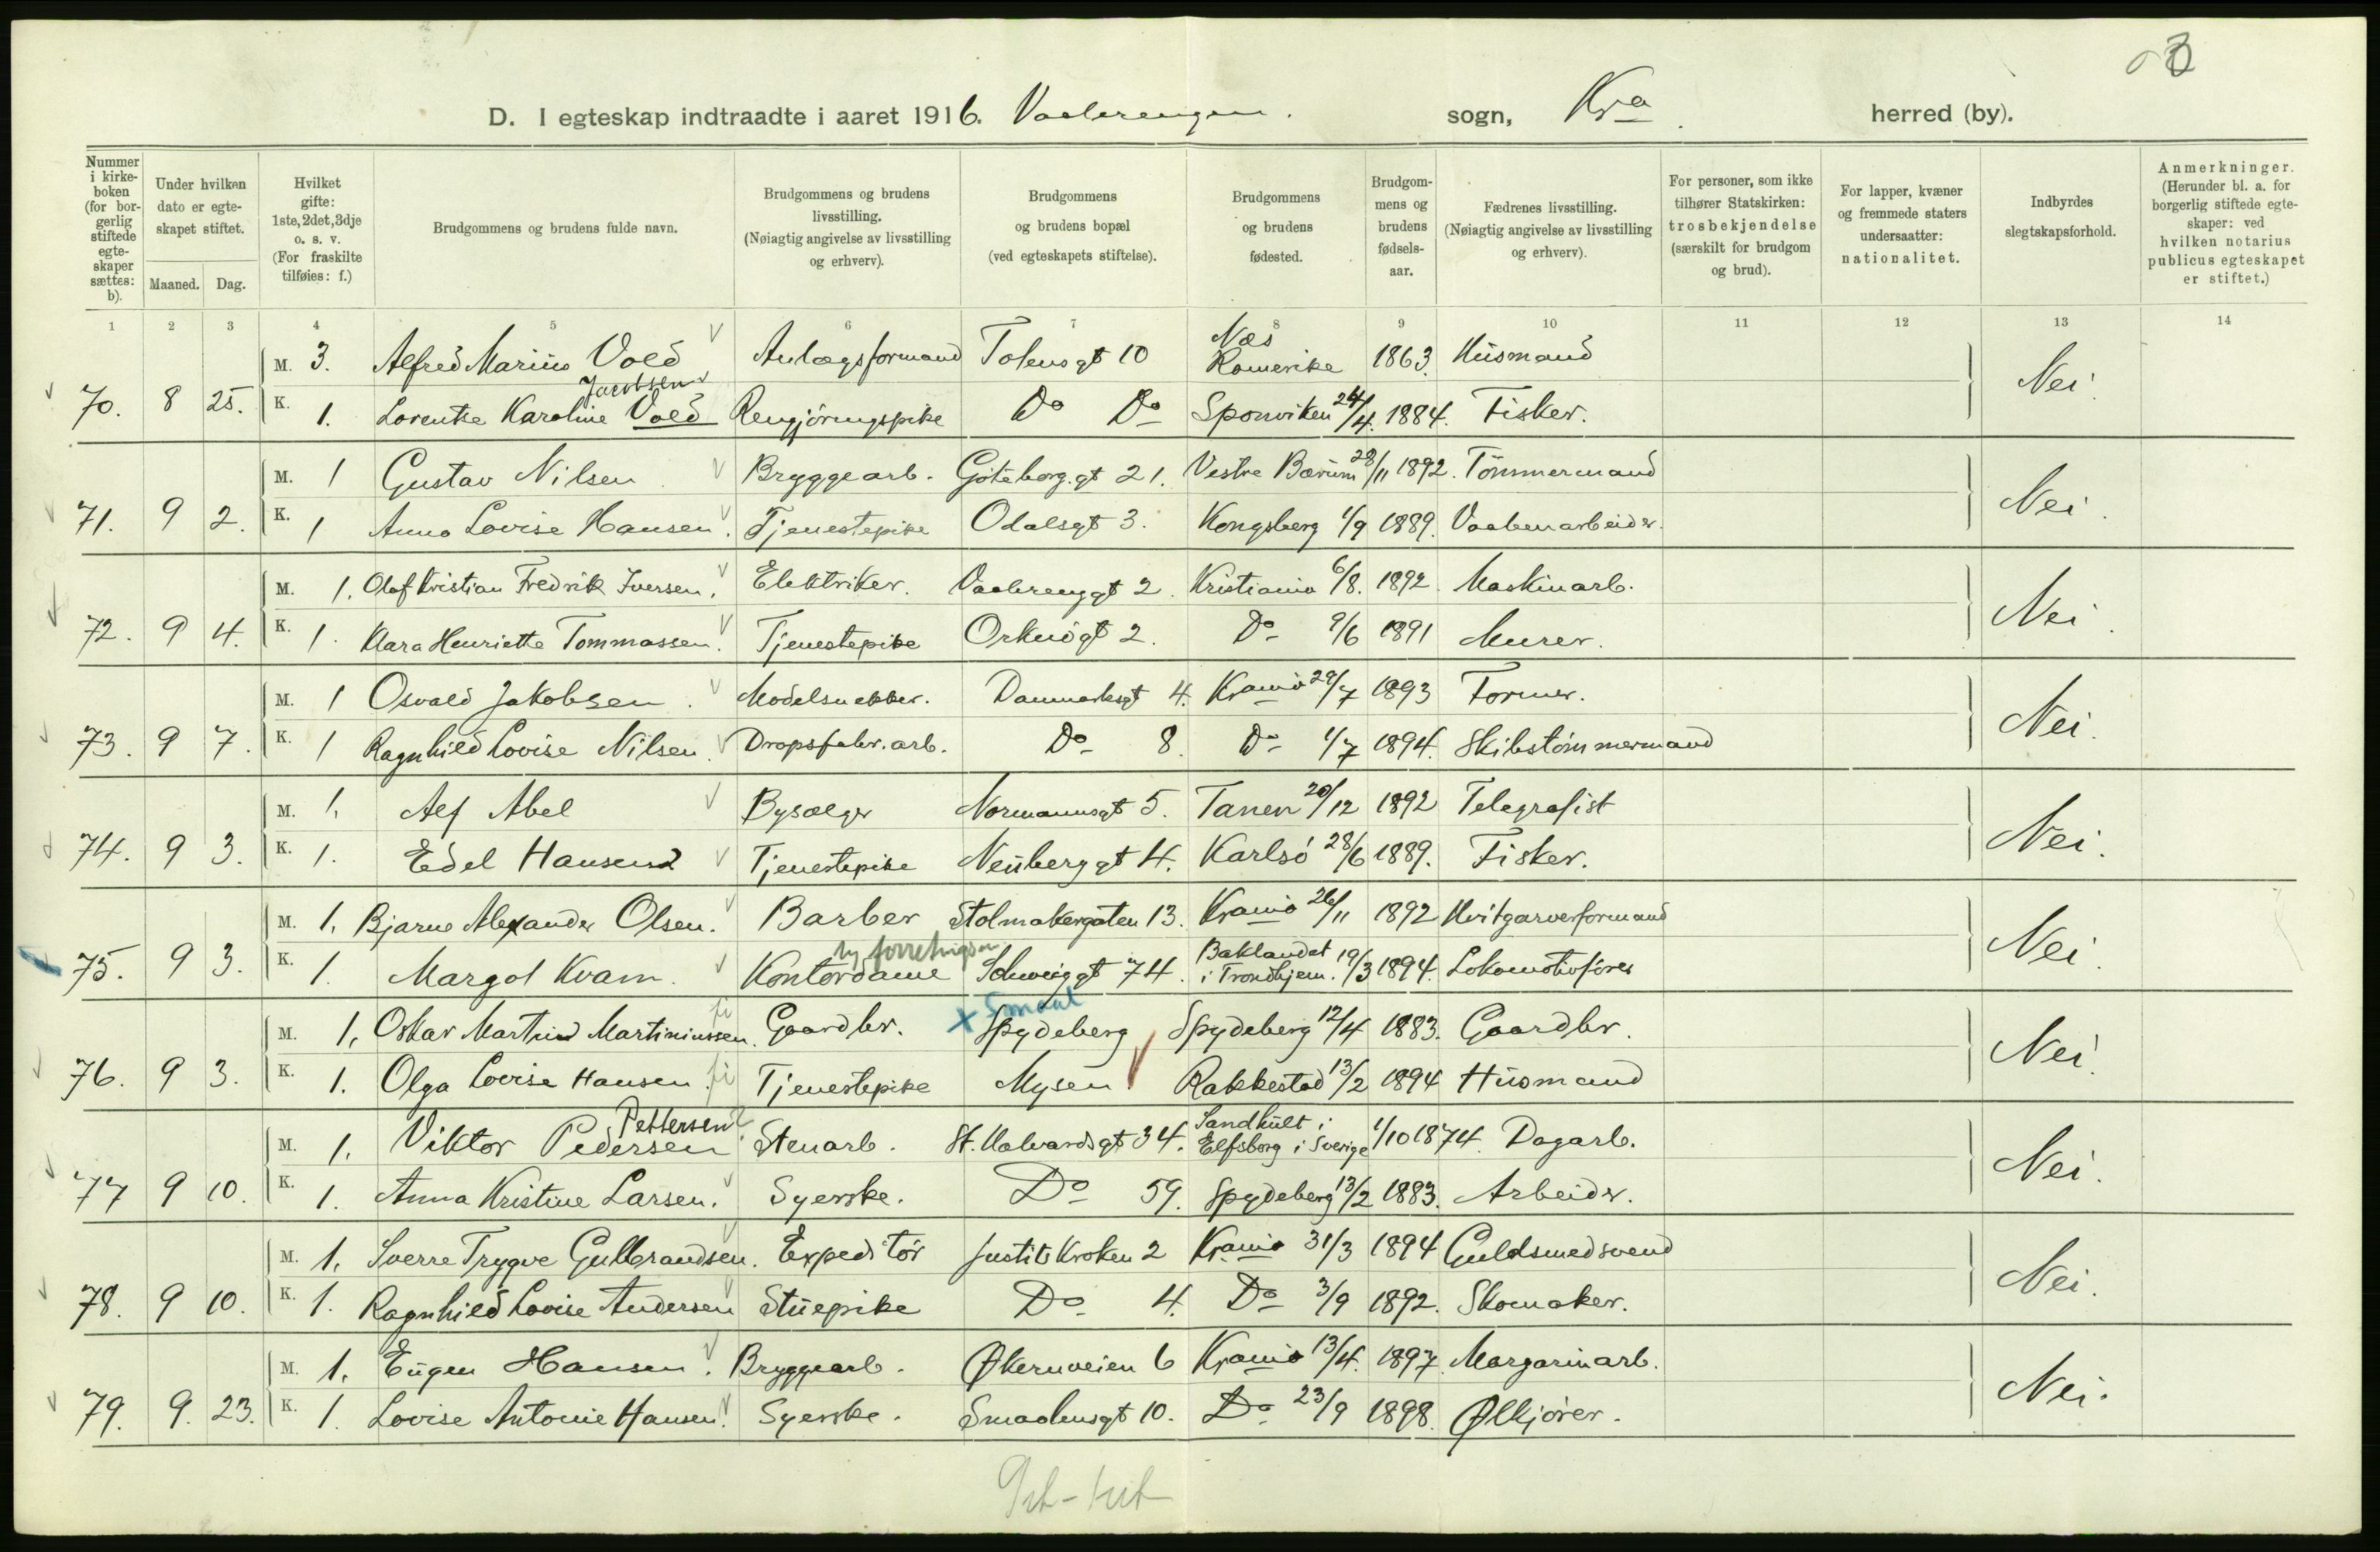 D. I egteskap indtraadte i aaret 1916. Vaalerengen. sogn, Kra. herred (by).
Nummer i kirkeboken (for borgerlig stiftede egteskaper sættes: b).
Under hvilken dato er egteskapet stiftet.
Maaned. Dag.
Hvilket gifte: 1ste, 2det, 3dje o. s. v. (For fraskilte tilføies: f.)
Brudgommens og brudens fulde navn.
Brudgommens og brudens livsstilling. (Nøiagtig angivelse av livsstilling og erhverv).
Brudgommens og brudens bopæl (ved egteskapets stiftelse).
Brudgommens og brudens fødested.
Brudgommens og brudens fødselsaar.
Fædrenes livsstilling. (Nøiagtig angivelse av livsstilling og erhverv).
For personer, som ikke tilhører Statskirken: trosbekjendelse (særskilt for brudgom og brud).
For lapper, kvæner og fremmede staters undersaatter: nationalitet.
Indbyrdes slegtskapsforhold.
Anmerkninger. (Herunder bl. a. for borgerlig stiftede egteskaper: ved hvilken notarius publicus egteskapet er stiftet.)
1 2 3 4 5 6 7 8 9 10 11 12 13 14
M. 3. Alfred Marius Vold Anlægsformand Tolensgt 10 Næs Romerike 1863. Husmand
70. 8 25. K. 1. Lorentse Karoline Vold Jacobsen Rengjøringspike Do Do Sponviken 24/4. 1884. Fisker. Nei.
M. 1 Gustav Nilsen Bryggearb. Göteborg.gt 21. Vestre Bærum 28/11 1892. Tömmermand
71. 9 2. K. 1 Anna Lovise Hansen. Tjenestepike Odalsgt 3. Kongsberg 1/9 1889. Vaabenarbeider. Nei.
M. 1. Olaf Kristian Fredrik Iversen. Elektriker. Vaalerenggt 2. Kristiania 6/8. 1892. Maskinarb.
72. 9 4. K. 1. Klara Henriette Tommassen. Tjenestepike Orknögt 2. Do 9/6 1891 Murer. Nei.
M. 1 Osvald Jakobsen. Modelsnekker. Danmarksgt 4. Krania 29/7 1893 Former.
73. 9 7. K. 1 Ragnhild Lovise Nilsen. Dropsfabr. arb. Do 8. Do 1/7 1894. Skibstömmermand Nei.
M. 1. Alf Abel Bysælger Normannsgt 5. Tanen 20/12 1892 Telegrafist
74. 9 3. K. 1. Edel Hansen Tjenestepike Neuberggt 4. Karlsö 28/6 1889. Fisker. Nei.
M. 1. Bjarne Alexander Olsen. Barber Stolmakergaten 13. Krania 26/11 1892 Hvitgarverformand
75. 9 3. K. 1. Margot Kvam. Kontordame Schweiggt 74. Baklandet i Trondhjem. 19/3 1894. Lokomotivförer Nei.
Smaal
M. 1. Oskar Martin Martiniussen. Gaardbr. x Spydeberg Spydeberg 12/4 1883. Gaardbr.
76. 9 3. K. 1. Olga Lovise Hansen. Tjenestepike Mysen. Rakkestad 13/2 1894 Husmand Nei.
M. 1. Viktor Pedersen Pettersen Stenarb. St. Halvardsgt 34. Sandhult i Elfsborg i Sverige 1/10 1874. Dagarb.
77 9 10. K. 1. Anna Kristine Larsen. Syerske. Do 59. Spydeberg 13/2 1883. Arbeider. Nei.
M. 1. Sverre Trygve Gulbrandsen. Expeditör Justitskroken 2 Krania 31/3 1894 Guldsmedsvend
78. 9 10. K. 1. Ragnhild Lovise Andersen Stuepike Do 4. Do 3/9 1892. Skomaker. Nei.
M. 1. Eugen Hansen. Bryggearb. Økernveien 6 Krania 13/4. 1897. Margarinarb.
79. 9. 23. K. 1. Lovise Antonie Hansen. Syerske. Smaalensgt 10. Do 23/9 1898. Ølkjörer. Nei.